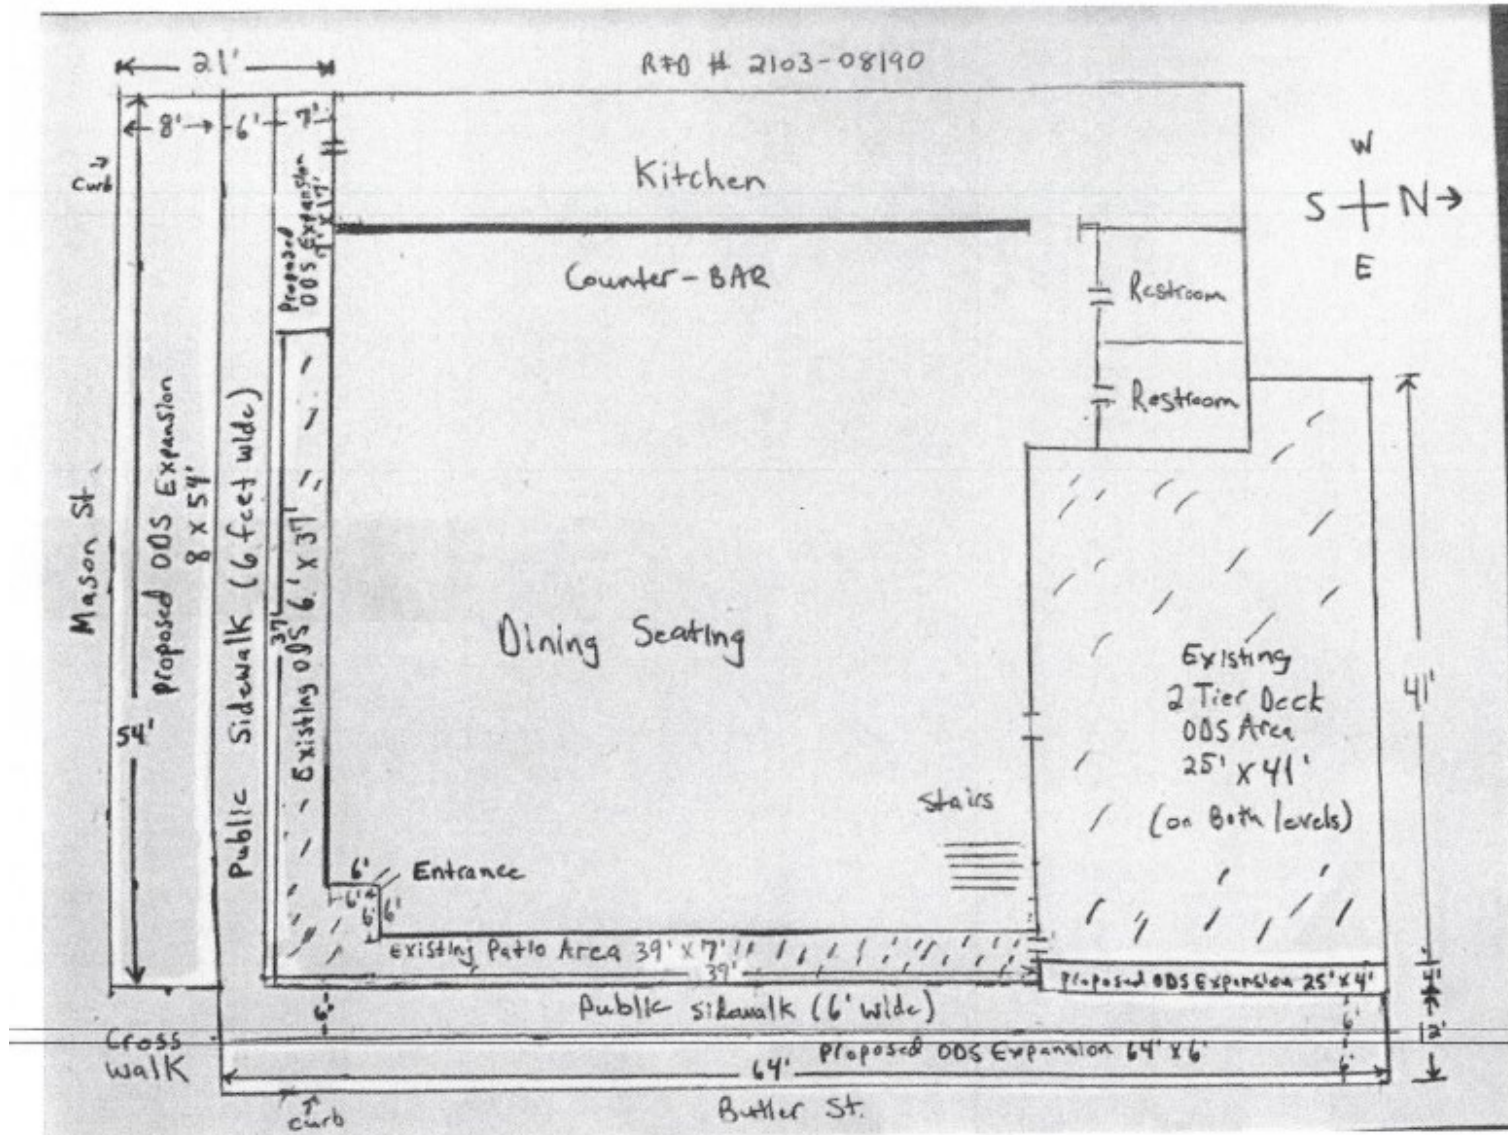 21'
RFD # 2103-08190
8'
6'
7'
Curb
Kitchen
W
S N
E
Proposed
ODS Expansion
7' X 17'
Counter-BAR
Restroom
Restroom
Mason St
Proposed ODS Expansion
8 X 54'
54'
Public Sidewalk (6 feet wide)
37'
Existing ODS 6' X 37'
Dining Seating
Existing
2 Tier Deck
ODS Area
25' X 41'
(on Both levels)
41'
Stairs
6'
Entrance
6'
6'
6'
Existing Patio Area 39' X 7'
39'
Proposed ODS Expansion 25' X 4'
4'
6'
Public sidewalk (6' wide)
6'
12'
Cross
walk
Proposed ODS Expansion 64' X 6'
64'
6'
Curb
Butler St.